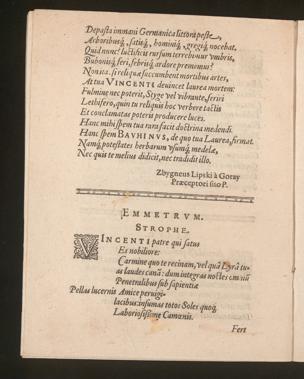 Depasta immani Germanica littora peste,
Arboribusq́, satisq́, hominiq́, gregiq́ nocebat.
Quid nunc? luctificis rursum terrebimur vmbris,
Bubonisq́ feri, febrisq́ ardore prememur?
Non ita. si reliquæ succumbent mortibus artes,
At tua VINCENTI deuincet laurea mortem:
Fulmine nec poterit, Styge vel vibrante, feriri
Lethifero, quin tu reliquis hoc verbere tactis
Et conclamatas poteris producere luces.
Hanc mihi spem tua rara facit doctrina medendi.
Hanc spem BAVHINVS, de quo tua Laurea, firmat.
Namq́ potestates herbarum vsumq́ medelæ,
Nec quis te melius didicit, nec tradidit illo.
Zbygneus Lipski à Goray
Præceptori suo P.
EMMETRVM.
STROPHE.
VINCENTI patre qui satus
Es nobiliore:
Carmine quo te recinam, vel quâ Lyrâ tu-
as laudes canā: dum integras noctes
Penetralibus sub sapientiæ
Pallas lucernis Amice peruigi-
lacibus: insumas totos Soles quoq́
Laboriosissime Camœnis.
Fert